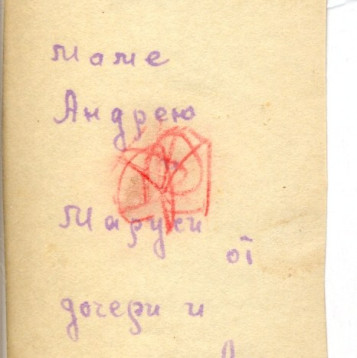 маме
Андрею
Маруси
от
дочери и